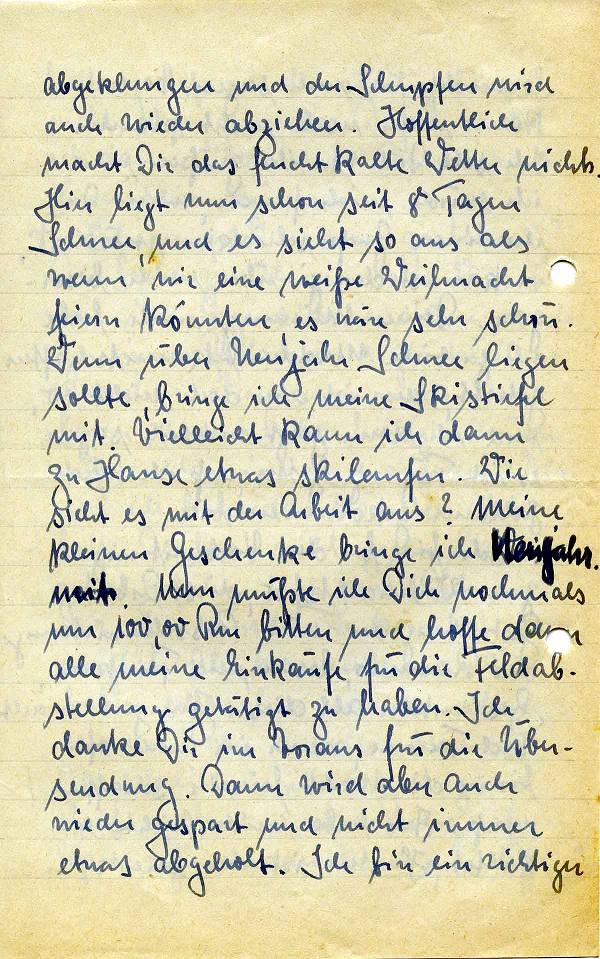 abgeklungen und der Schnupfen wird
auch wieder abziehen. Hoffentlich
macht Dir das feuchtkalte Wetter nichts.
Hier liegt nun schon seit 8 Tagen
Schnee, und es sieht so aus als
wenn wir eine weiße Weihnacht
feiern könnten, es wäre sehr schön.
Wenn über Neujahr Schnee liegen
sollte, bringe ich meine Skistiefel
mit. Vielleicht kann ich dann
zu Hause etwas skilaufen. Wie
sieht es mit der Arbeit aus? Meine
kleinen Geschenke bringe ich Neujahr.
mit. Nun mußte ich Dich nochmals
um 100,00 Rm bitten und hoffe dann
alle meine Einkäufe für die Feldab-
stellung getätigt zu haben. Ich
danke Dir im Voraus für die Über-
sendung. Dann wird aber auch
wieder gespart und nicht immer
etwas abgeholt. Ich bin ein richtiger